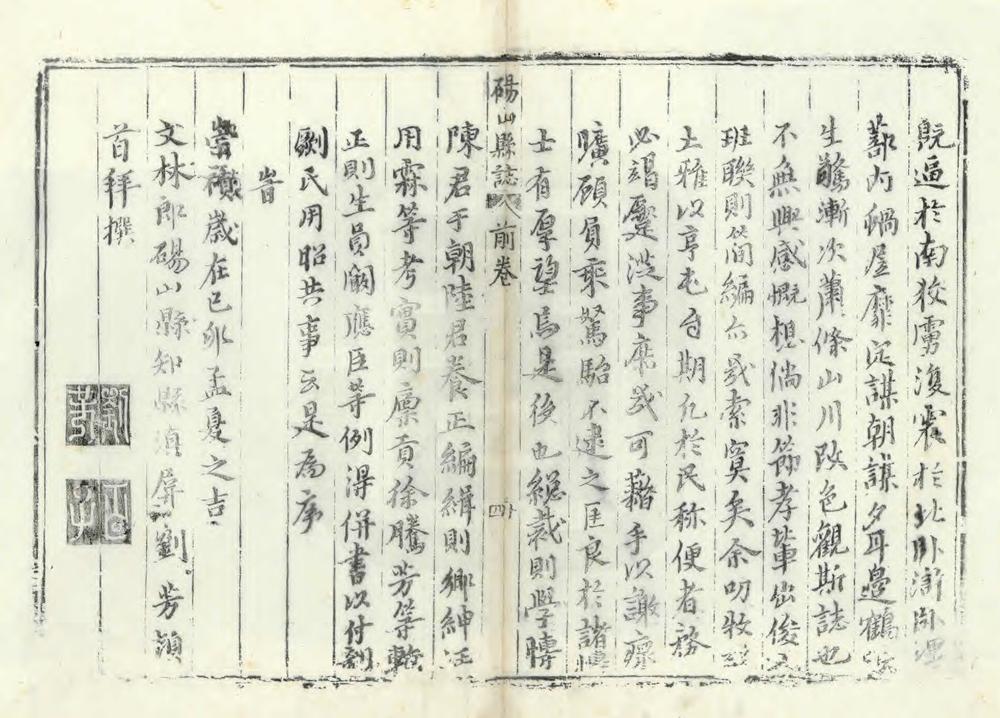 既逼於南狡虜復震於北卧滸
蔀內蝸屋靡定謀朝謀夕耳邊鶴
生驚漸次蕭條山川改色觀斯誌也
不無興感慨想倘非節孝輩出俊乂
班聯則簡編亦幾索寞矣余叨牧
土雅以亨屯自期凡於民称便者務
必竭蹷從事庶幾可藉手以謝瘝
曠顧負乘駑駘不逮之匡良於諸博
士有厚望焉是後也總裁則學博
砀山縣誌 前卷 四
陳君于朝陸君養正編緝則鄉紳汪
用霖等考實則廩貢徐騰芳等較
正則生員闞應臣等例淂併書以付剞
劂氏用昭共事云是爲序
旹
崇禎歲在己卯孟夏之吉
文林郎砀山縣知縣滇屏劉芳
首拜撰